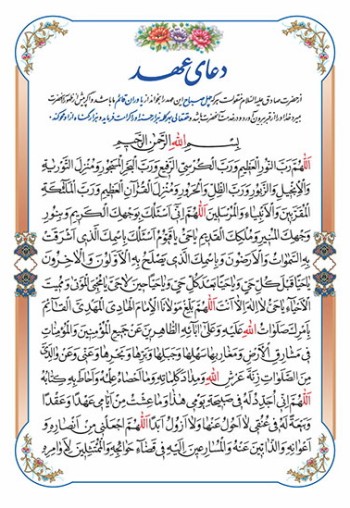 دعای عهد
از حضرت صادق علیه السلام منقولست هر که چهل صباح این عهد را بخواند از یاوران قائم ما باشد و اگر پیش از ظهور آنحضرت
بمیرد خدا او را از قبر بیرون آورد و در خدمت آنحضرت باشد و حقتعالی بهر کلمه هزار حسنه او را کرامت فرماید و هزار گناه از او محو کند
بسم الله الرحمن الرحیم
اللهم رب النور العظیم ورب الکرسی الرفیع ورب البحر المسجور ومنزل التوریة
والإنجیل والزبور ورب الظل والحرور ومنزل القرآن العظیم ورب الملئکة
المقربین والأنبیاء والمرسلین اللهم إنی أسئلک بوجهک الکریم وبنور
وجهک المنیر وملکک القدیم یا حی یا قیوم أسئلک باسمک الذی أشرقت
به السموات والأرضون وباسمک الذی یصلح به الأولون والآخرون
یا حیا قبل کل حی ویا حیا بعد کل حی ویا حیا حین لا حی یا محیی الموتی وممیت
الأحیاء یا حی لا إله إلا أنت اللهم بلغ مولانا الإمام الهادی المهدی القائم
بأمرک صلوات الله علیه وعلی آبائه الطاهرین عن جمیع المؤمنین والمؤمنات
فی مشارق الأرض ومغاربها سهلها وجبلها وبرها وبحرها وعنی وعن والدی
من الصلوات زنة عرش الله ومداد کلماته وما أحصاه علمه وأحاط به کتابه
اللهم إنی أجدد له فی صبیحة یومی هذا وما عشت من أیامی عهدا وعقدا
وبیعة له فی عنقی لا أحول عنها ولا أزول أبدا اللهم اجعلنی من أنصاره و
أعوانه والذابین عنه والمسارعین إلیه فی قضاء حوائجه والممتثلین لأوامره